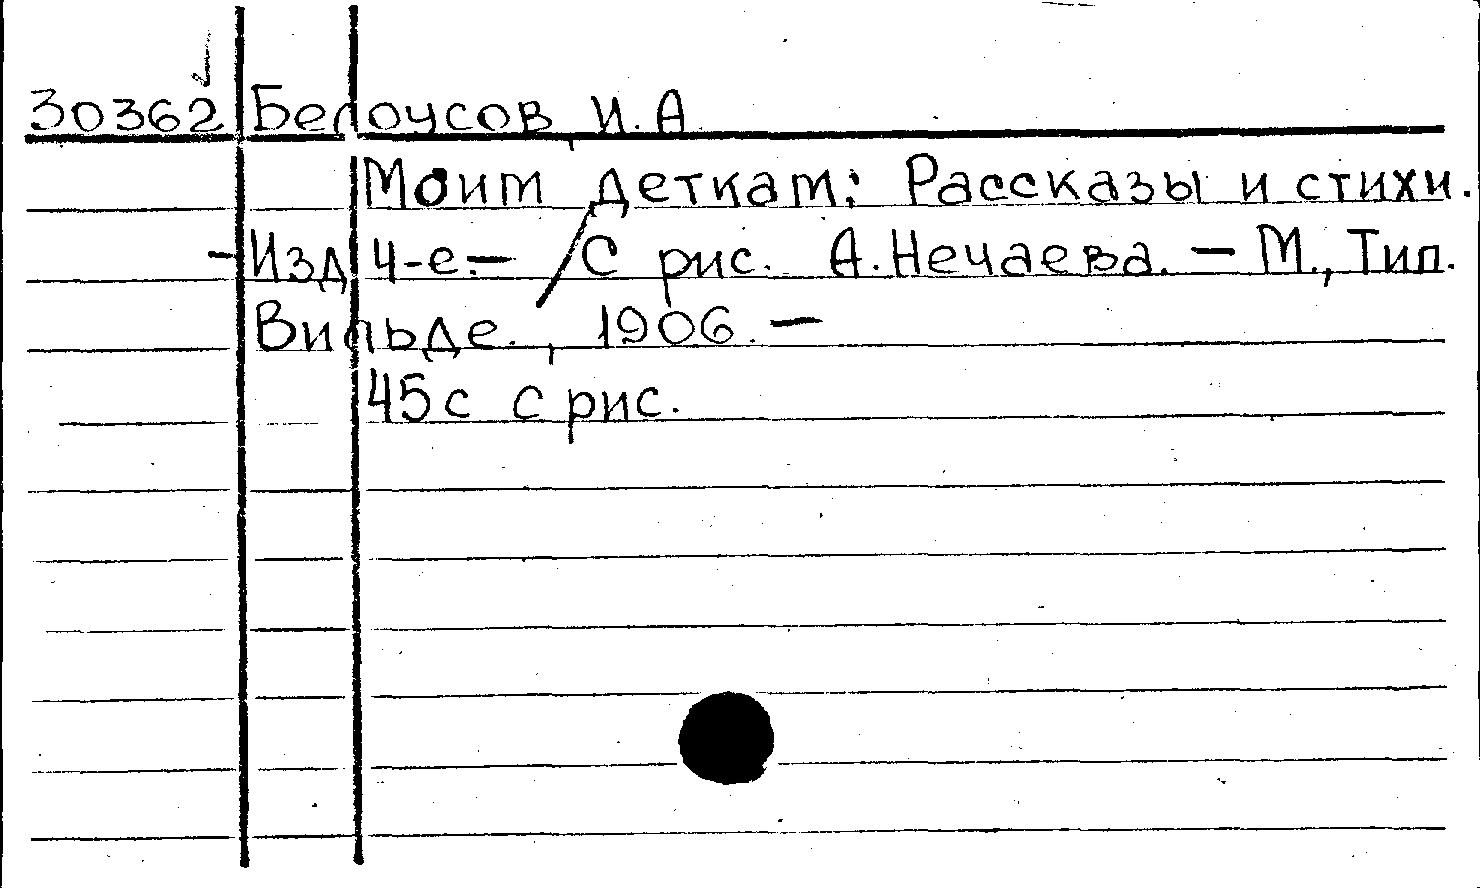 30362 Белоусов, И.А
Моим деткам: Рассказы и стихи.
- Изд 4-е. - / С рис. А. Нечаева. - М., Тип.
Вильде., 1906. -
45 с с рис.